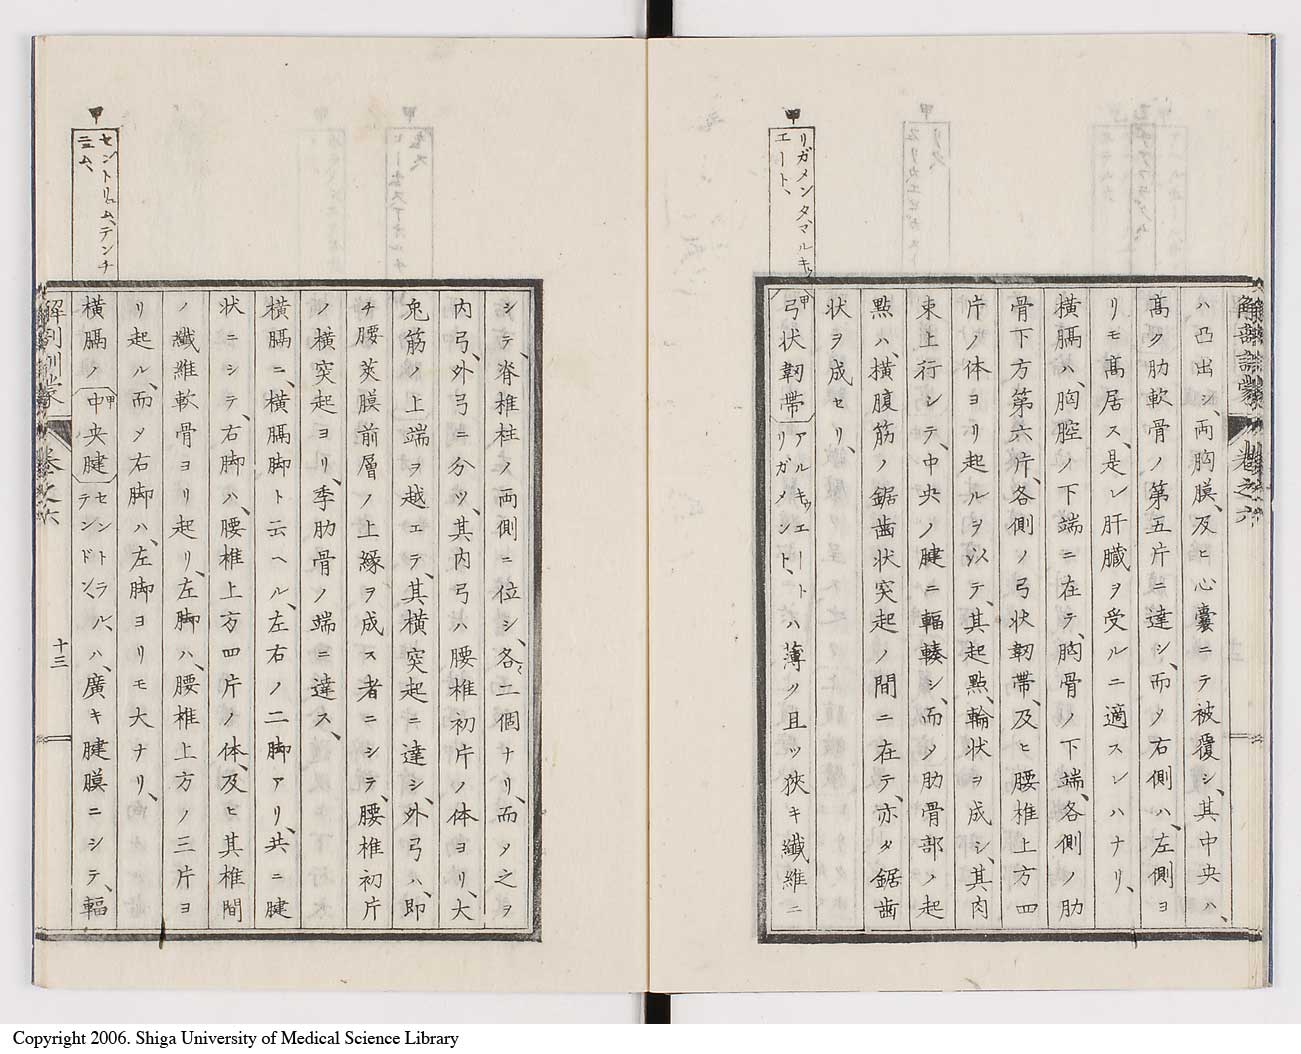 甲
リガメンタマルキッ
エート、
解剖訓蒙
卷之六
ハ凸出シ、両胸膜、及ヒ心嚢ニテ被覆シ、其中央ハ、
髙ク肋軟骨ノ第五片ニ達シ、而メ右側ハ、左側ヨ
リモ髙居ス、是レ肝臓ヲ受ルニ適スレハナリ、
横膈ハ、胸腔ノ下端ニ在テ、胸骨ノ下端、各側ノ肋
骨下方第六片、各側ノ弓状靭帶、及ヒ腰椎上方四
片ノ体ヨリ起ルヲ以テ、其起㸃、輪状ヲ成シ、其肉
束上行シテ、中央ノ腱ニ輻輳シ、而メ肋骨部ノ起
㸃ハ、横腹筋ノ鋸歯状突起ノ間ニ在テ、亦タ鋸歯
状ヲ成セリ、
甲弓状靭帶アルキッエートリガメント、ハ薄ク且ツ狹キ纎維ニ
甲
セントリュム、テンヂ
ニュム、
シテ、脊椎柱ノ両側ニ位シ、各二個ナリ、而メ之ヲ
内弓、外弓ニ分ツ、其内弓ハ腰椎初片ノ体ヨリ、大
兎筋ノ上端ヲ越エテ、其横突起ニ達シ、外弓ハ、即
チ腰莢膜前層ノ上縁ヲ成ス者ニシテ、腰椎初片
ノ横突起ヨリ、季肋骨ノ端ニ達ス、
横膈ニ、横膈脚ト云ヘル、左右ノ二脚アリ、共ニ腱
状ニシテ、右脚ハ、腰椎上方四片ノ体、及ヒ其椎間
ノ纎維軟骨ヨリ起リ、左脚ハ、腰椎上方ノ三片ヨ
リ起ル、而メ右脚ハ、左脚ヨリモ大ナリ、
横膈ノ甲中央腱セントラル、テンドン、ハ、廣キ腱膜ニシテ、輻
解剖訓蒙
卷之六
十三
Copyright 2006. Shiga University of Medical Science Library